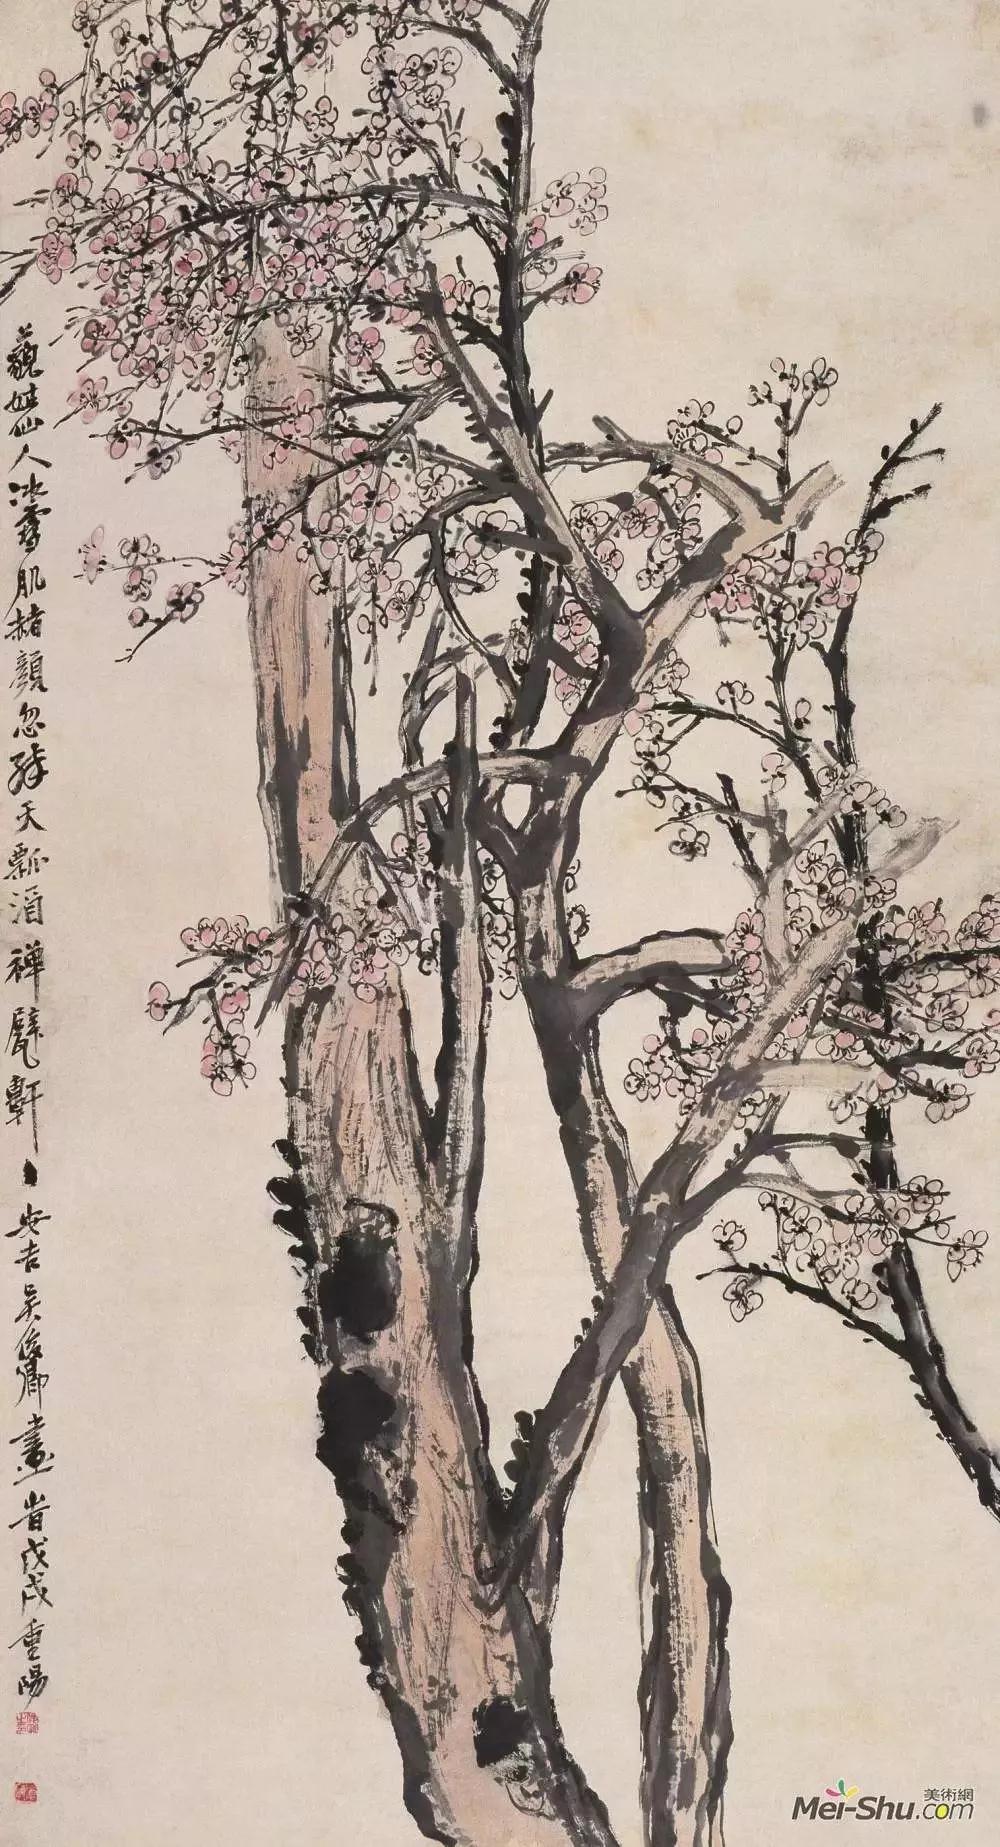 藐姑仙人冰雪肌赭顏忽天瓢酒禅甓軒丶安吉吳俊卿畫旹戊戌重陽
美術網
Mei-Shu.com